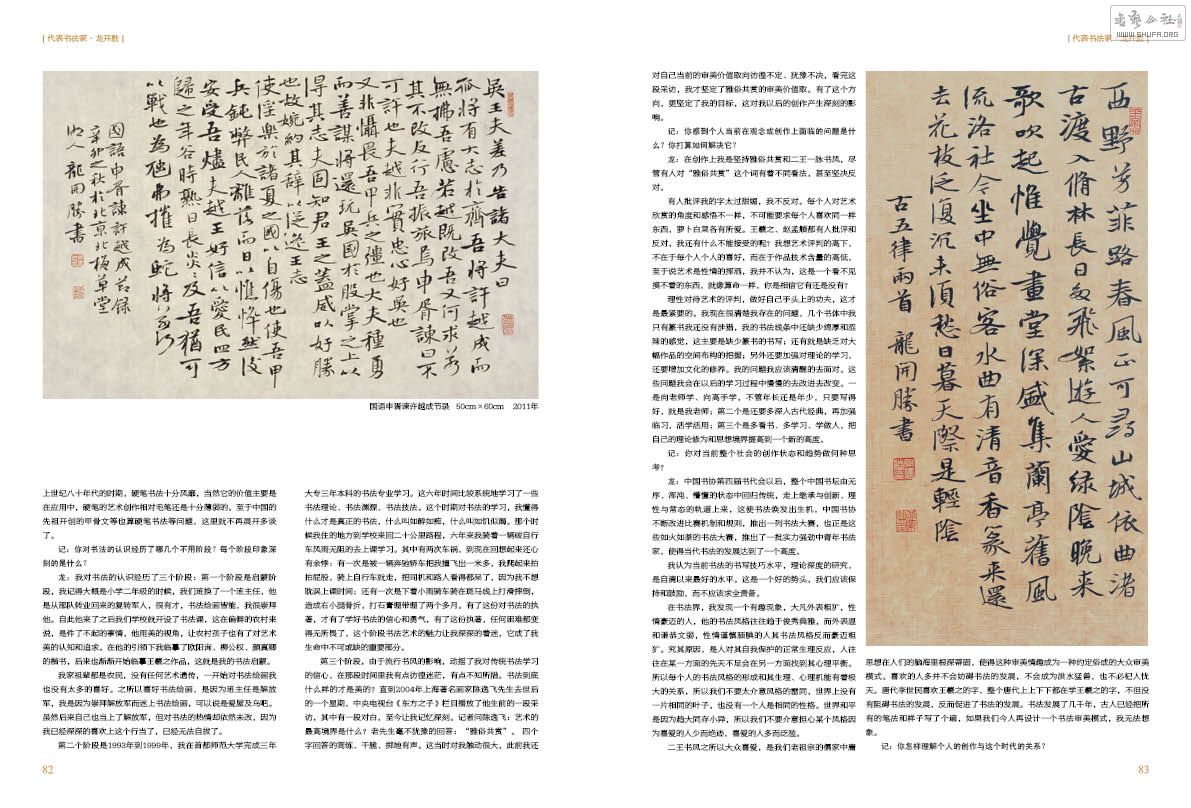 [ 代表书法家·龙开胜 ]
吳王夫差乃告諸大夫曰
孤將有大志於齊吾將許越成而
無拂吾慮若越既改吾又何求若
其不改反行吾振旅焉申胥諫曰不
可許也夫越非實忠心好吳也
又非懾畏吾甲兵之彊也大夫種勇
而善謀將還玩吳國於股掌之上以
得其志夫固知君王之蓋威以好勝
也故婉約其辭以從逸王志
使淫樂於諸夏之國以自傷也使吾甲
兵鈍弊民人離落而日以憔悴然後
安受吾燼夫越王好信以愛民四方
歸之年谷時熟日長炎炎及吾猶可
以戰也為虺弗摧為蛇將若何
國語申胥諫許越成節錄
辛卯之秋於北京北極草堂
人龍開勝書
国语申胥谏许越成节录 50cm×60cm 2011年
上世纪八十年代的时期，硬笔书法十分风靡，当然它的价值主要是
在应用中，硬笔的艺术创作相对毛笔还是十分薄弱的。至于中国的
先祖开创的甲骨文等也算硬笔书法等问题，这里就不再展开多谈
了。
记：你对书法的认识经历了哪几个不用阶段？每个阶段印象深
刻的是什么？
龙：我对书法的认识经历了三个阶段：第一个阶段是启蒙阶
段，我记得大概是小学二年级的时候，我们班换了一个班主任，他
是从部队转业回来的复转军人，很有才，书法绘画皆能，我很崇拜
他。自此他来了之后我们学校就开设了书法课，这在偏僻的农村来
说，是件了不起的事情，他用美的视角，让农村孩子也有了对艺术
美的认知和追求，在他的引领下我临摹了欧阳询、柳公权、颜真卿
的楷书，后来也渐渐开始临摹王羲之作品，这就是我的书法启蒙。
我家祖辈都是农民，没有任何艺术遗传，一开始对书法绘画我
也没有太多的喜好。之所以喜好书法绘画，是因为班主任是解放
军，我是因为崇拜解放军而迷上书法绘画，可以说是爱屋及乌吧。
虽然后来自己也当上了解放军，但对书法的热情却依然未改，因为
我已经深深的喜欢上这个行当了，已经无法自拔了。
第二个阶段是1993年到1999年，我在首都师范大学完成三年
大专三年本科的书法专业学习。这六年时间比较系统地学习了一些
书法理论、书法渊源、书法技法。这个时期对书法的学习，我懂得
什么才是真正的书法，什么叫如醉如痴，什么叫如饥似渴。那个时
候我住的地方到学校来回二十公里路程，六年来我骑着一辆破自行
车风雨无阻的去上课学习。其中有两次车祸，到现在回想起来还心
有余悸：有一次是被一辆奔驰轿车把我撞飞出一米多，我爬起来拍
拍屁股，骑上自行车就走，把司机和路人看得都呆了，因为我不想
耽误上课时间；还有一次是下着小雨骑车骑在斑马线上打滑摔倒，
造成右小腿骨折，打石膏绷带绷了两个多月。有了这份对书法的执
著，才有了学好书法的信心和勇气，有了这份执著，任何困难都变
得无所畏了，这个阶段书法艺术的魅力让我深深的着迷，它成了我
生命中不可或缺的重要部分。
第三个阶段，由于流行书风的影响，动摇了我对传统书法学习
的信心，在那段时间里我有点彷徨迷茫，有点不知所措。书法到底
什么样的才是美的？直到2004年上海著名画家陈逸飞先生去世后
的一个星期，中央电视台《东方之子》栏目播放了他生前的一段采
访，其中有一段对白，至今让我记忆深刻。记者问陈逸飞：艺术的
最高境界是什么？老先生毫不犹豫的回答：“雅俗共赏”。四个
字回答的简练、干脆、掷地有声。这当时对我触动很大，此前我还
82
书艺公社
WWW.SHUFA.ORG
[ 代表书法家·龙开胜 ]
对自己当前的审美价值取向彷徨不定、犹豫不决，看完这
段采访，我才坚定了雅俗共赏的审美价值取。有了这个方
向，更坚定了我的目标，这对我以后的创作产生深刻的影
响。
记：你感到个人当前在观念或创作上面临的问题是什
么？你打算如何解决它？
龙：在创作上我是坚持雅俗共赏和二王一脉书风，尽
管有人对“雅俗共赏”这个词有着不同看法，甚至坚决反
对。
有人批评我的字太过甜媚，我不反对。每个人对艺术
欣赏的角度和感悟不一样，不可能要求每个人喜欢同一样
东西，萝卜白菜各有所爱。王羲之、赵孟頫都有人批评和
反对，我还有什么不能接受的呢？我想艺术评判的高下，
不在于每个人个人的喜好，而在于作品技术含量的高低。
至于说艺术是性情的挥洒，我并不认为，这是一个看不见
摸不着的东西，就像算命一样，你是相信它有还是没有？
理性对待艺术的评判，做好自己手头上的功夫，这才
是最紧要的。我现在很清楚我存在的问题，几个书体中我
只有篆书我还没有涉猎，我的书法线条中还缺少绵厚和涩
辣的感觉，这主要是缺少篆书的书写；还有就是缺乏对大
幅作品的空间布构的把握；另外还要加强对理论的学习，
还要增加文化的修养。我的问题我应该清醒的去面对。这
些问题我会在以后的学习过程中慢慢的去改进去改变。一
是向老师学、向高手学，不管年长还是年少，只要写得
好，就是我老师；第二个是还要多深入古代经典，再加强
临习，活学活用；第三个是多看书、多学习、学做人，把
自己的理论修为和思想境界提高到一个新的高度。
记：你对当前整个社会的创作状态和趋势做何种思
考？
龙：中国书协第四届书代会以后，整个中国书坛由无
序、浑沌、懵懂的状态中回归传统，走上继承与创新，理
性与常态的轨道上来，这使书法焕发出生机，中国书协
不断改进比赛机制和规则，推出一列书法大赛，也正是这
些如火如荼的书法大赛，推出了一批实力强劲中青年书法
家，使得当代书法的发展达到了一个高度。
我认为当前书法的书写技巧水平，理论深度的研究，
是自清以来最好的水平。这是一个好的势头，我们应该保
持和鼓励，而不应该求全责备。
在书法界，我发现一个有趣现象，大凡外表粗犷，性
情豪迈的人，他的书法风格往往趋于俊秀典雅，而外表温
和谦恭文弱，性情谨慎腼腆的人其书法风格反而豪迈粗
犷。究其原因，是人对其自我保护的正常生理反应，人往
往在某一方面的先天不足会在另一方面找到其心理平衡。
所以每个人的书法风格的形成和其生理、心理机能有着极
大的关系，所以我们不要太介意风格的雷同，世界上没有
一片相同的叶子，也没有一个人是相同的性格。世界和平
是因为趋大同存小异，所以我们不要介意担心某个风格因
为喜爱的人少而绝迹，喜爱的人多而泛滥。
二王书风之所以大众喜爱，是我们老祖宗的儒家中庸
西野芳菲路春風正可尋山城依曲渚
古渡入脩林長日多飛絮遊人愛綠陰晚來
歌吹起惟覺畫堂深盛集蘭亭舊風
流洛社今坐中無俗客水曲有清音香篆來還
去花枝泛復沉未須愁日暮天際是輕陰
古五律兩首 龍開勝書
思想在人们的脑海里根深蒂固，使得这种审美情趣成为一种约定俗成的大众审美
模式。喜欢的人多并不会妨碍书法的发展，不会成为洪水猛兽，也不必杞人忧
天。唐代李世民喜欢王羲之的字，整个唐代上上下下都在学王羲之的字，不但没
有阻碍书法的发展，反而促进了书法的发展。书法发展了几千年，古人已经把所
有的笔法和样子写了个遍，如果我们今人再设计一个书法审美模式，我无法想
象。
记：你怎样理解个人的创作与这个时代的关系？
83